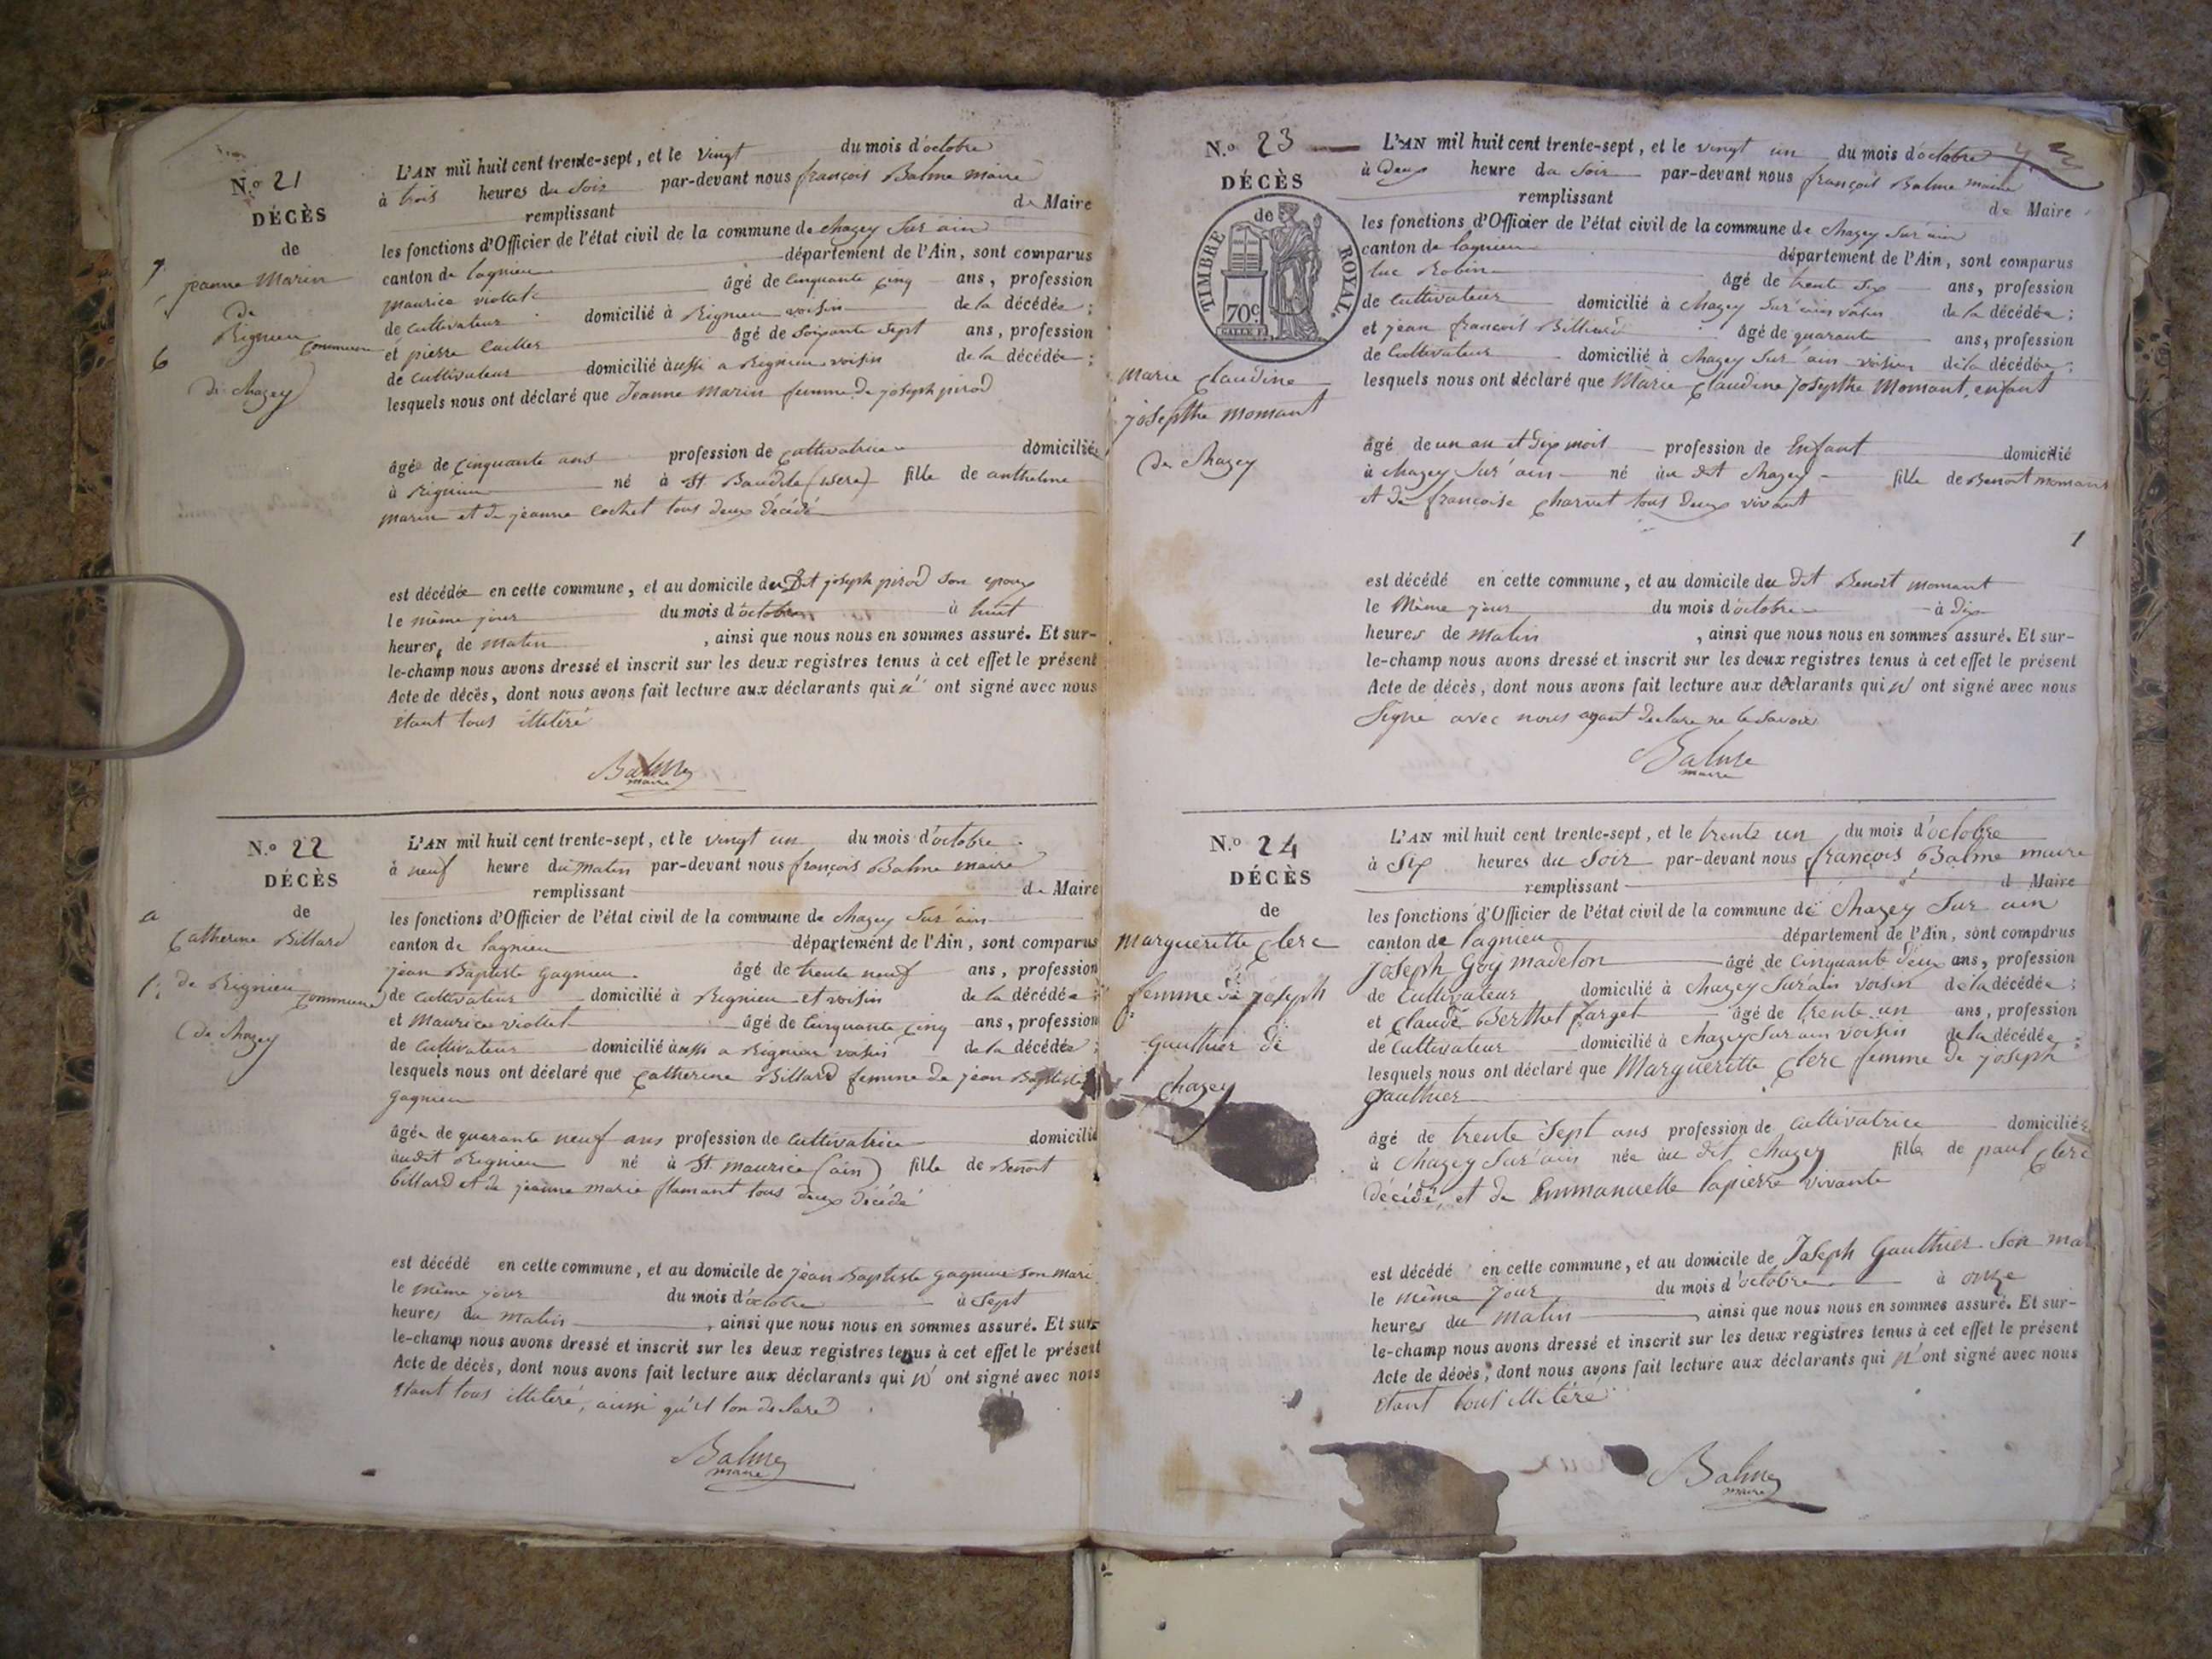 N.º 21
DÉCÈS
de
jeanne Marin
de
Rignieu
commune
de Chazey
L'AN mil huit cent trente-sept, et le vingt du mois d'octobre
à trois heures du Soir par-devant nous françois Balme maire
remplissant de Maire
les fonctions d'Officier de l'état civil de la commune de chazey Sur ain
canton de lagnieu département de l'Ain, sont comparus
maurice viollet âgé de cinquante cinq ans, profession
de cultivateur domicilié à Rignieu voisin de la décédée ;
et pierre âgé de Soixante Sept ans, profession
de cultivateur domicilié aussi a Rignieu voisin de la décédée ;
lesquels nous ont déclaré que Jeanne Marin femme de joseph pirod
âgée de cinquante ans profession de cultivatrice domiciliée
à Rignieu né à St Baudile (isere) fille de anthelme
marin et de jeanne cochet tous deux décédé
est décédée en cette commune, et au domicile du Dit joseph pirod son epoux
le même jour du mois d'octobre à huit
heures, de matin , ainsi que nous nous en sommes assuré. Et sur-
le-champ nous avons dressé et inscrit sur les deux registres tenus à cet effet le présent
Acte de décès, dont nous avons fait lecture aux déclarants qui n' ont signé avec nous
étant tous illitéré
Balme
maire
N.º 22
DÉCÈS
de
Catherine Billard
de Rignieu
commune
de Chazey
L'AN mil huit cent trente-sept, et le vingt un du mois d'octobre
à neuf heure du matin par-devant nous françois Balme maire
remplissant de Maire
les fonctions d'Officier de l'état civil de la commune de chazey Sur ain
canton de lagnieu département de l'Ain, sont comparus
jean Baptiste gagnieu âgé de trente neuf ans, profession
de cultivateur domicilié à Rignieu et voisin de la décédée ;
et Maurice viollet âgé de cinquante cinq ans, profession
de cultivateur domicilié aussi a Rignieu voisin de la décédée ;
lesquels nous ont déclaré que Catherine Billard femme de jean Baptiste
gagnieu
âgée de quarante neuf ans profession de cultivatrice domicilié
audit Rignieu né à St. maurice (ain) fille de Benoit
billard et de jeanne marie flamant tous deux décédé
est décédé en cette commune, et au domicile de jean Baptiste gagnieu son mari
le même jour du mois d'octobre à Sept
heures du matin , ainsi que nous nous en sommes assuré. Et sur-
le-champ nous avons dressé et inscrit sur les deux registres tenus à cet effet le présent
Acte de décès, dont nous avons fait lecture aux déclarants qui n' ont signé avec nous
étant tous illitéré, aussi qu'il lon declaré
Balme
maire
N.º 23
DÉCÈS
de
TIMBRE ROYAL
70c
marie Claudine
josepthe momant
de Chazey
L'AN mil huit cent trente-sept, et le vingt un du mois d'octobre
à Deux heure du Soir par-devant nous françois Balme maire
remplissant de Maire
les fonctions d'Officier de l'état civil de la commune de chazey Sur ain
canton de lagnieu département de l'Ain, sont comparus
luc Robin âgé de trente Six ans, profession
de cultivateur domicilié à chazey Sur ain voisin de la décédée ;
et jean françois âgé de quarante ans, profession
de Cultivateur domicilié à chazey Sur ain voisin de la décédée ;
lesquels nous ont déclaré que Marie Claudine josepthe Momant, enfant
âgé de un an et dix mois profession de Enfant domicilié
à chazey Sur ain né au dit chazey fille de Benoit momant
et de françoise charvet tous deux vivant
1
est décédé en cette commune, et au domicile du dit Benoit momant
le Même jour du mois d'octobre à dix
heures de matin , ainsi que nous nous en sommes assuré. Et sur-
le-champ nous avons dressé et inscrit sur les deux registres tenus à cet effet le présent
Acte de décès, dont nous avons fait lecture aux déclarants qui n' ont signé avec nous
Signé avec nous ayant declare ne le Savoir
Balme
maire
N.º 24
DÉCÈS
de
Margueritte Clerc
femme de joseph
gauthier de
Chazey
L'AN mil huit cent trente-sept, et le trente un du mois d'octobre
à Six heures du Soir par-devant nous françois Balme maire
remplissant d Maire
les fonctions d'Officier de l'état civil de la commune de Chazey Sur ain
canton de lagnieu département de l'Ain, sont comparus
joseph Goÿ madelon âgé de cinquante deux ans, profession
de Cultivateur domicilié à chazey Sur ain voisin de la décédée ;
et Claude Berthet farget âgé de trente un ans, profession
de Cultivateur domicilié à chazey Sur ain voisin de la décédée ;
lesquels nous ont déclaré que Margueritte Clerc femme de joseph
gauthier
âgé de trente Sept ans profession de cultivatrice domiciliée
à chazey Sur ain née au dit chazey fille de paul Clerc
décédé, et de Emmanuelle lapierre vivante
est décédé en cette commune, et au domicile de Joseph Gauthier Son mari
le même jour du mois d'octobre à onze
heures du matin , ainsi que nous nous en sommes assuré. Et sur-
le-champ nous avons dressé et inscrit sur les deux registres tenus à cet effet le présent
Acte de décès, dont nous avons fait lecture aux déclarants qui n'ont signé avec nous
étant tous illitéré
Balme
maire